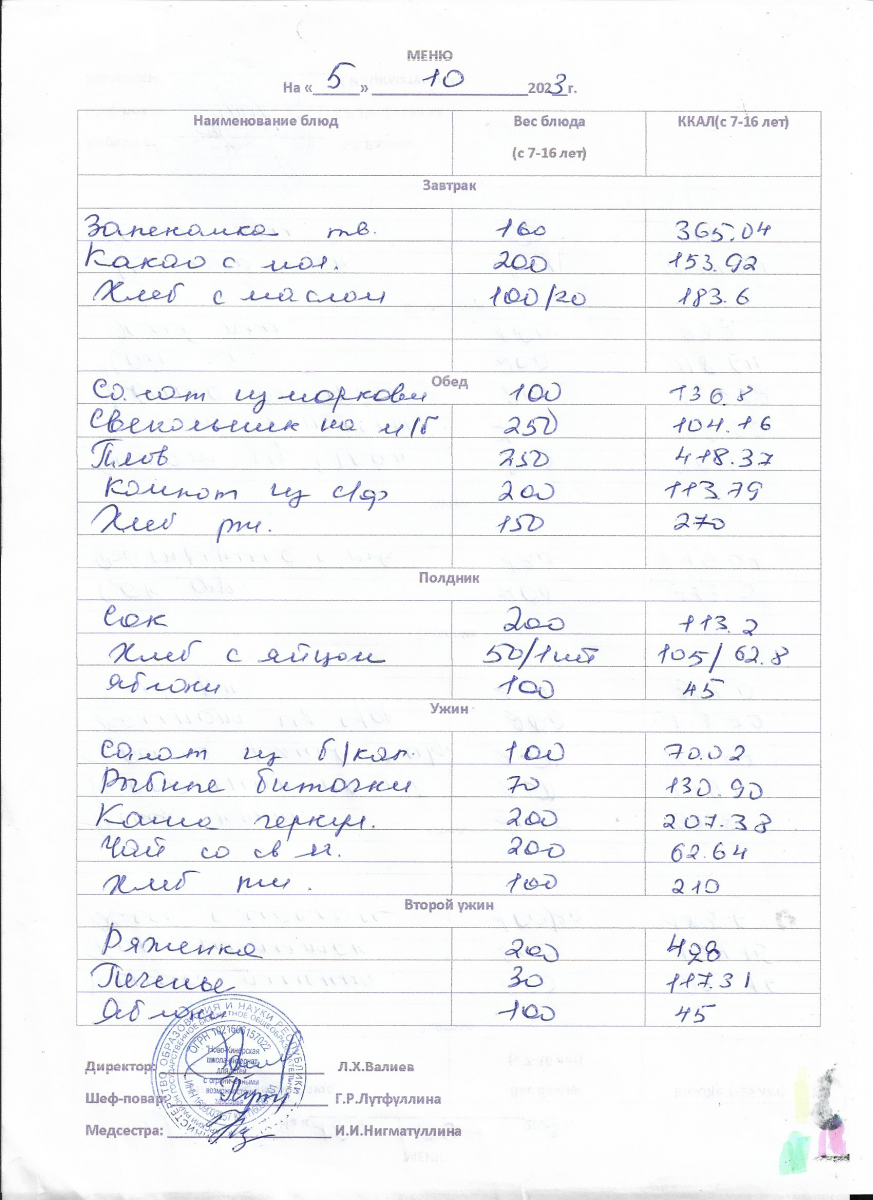 МЕНЮ
На « 5 » 10 2023 г.
Наименование блюд Вес блюда (с 7-16 лет) ККАЛ(с 7-16 лет)
Завтрак
Запеканка тв. 160 365.04
Какао с мол. 200 153.92
Хлеб с маслом 100/20 183.6
Обед
Салат из моркови 100 136.8
Свекольник на м/б 250 104.16
Плов 250 418.37
Компот из с/ф 200 113.79
Хлеб рж. 150 270
Полдник
Сок 200 113.2
Хлеб с яйцом 50/1шт 105/62.8
Яблоки 100 45
Ужин
Салат из б/кап. 100 70.02
Рыбные биточки 70 130.90
Каша геркул. 200 207.38
Чай со св м. 200 62.64
Хлеб рж. 100 210
Второй ужин
Ряженка 200
Печенье 30 117.31
Яблоки 100 45
Директор: Л.Х.Валиев
Шеф-повар: Г.Р.Лутфуллина
Медсестра: И.И.Нигматуллина
ОГРН 1021606157022